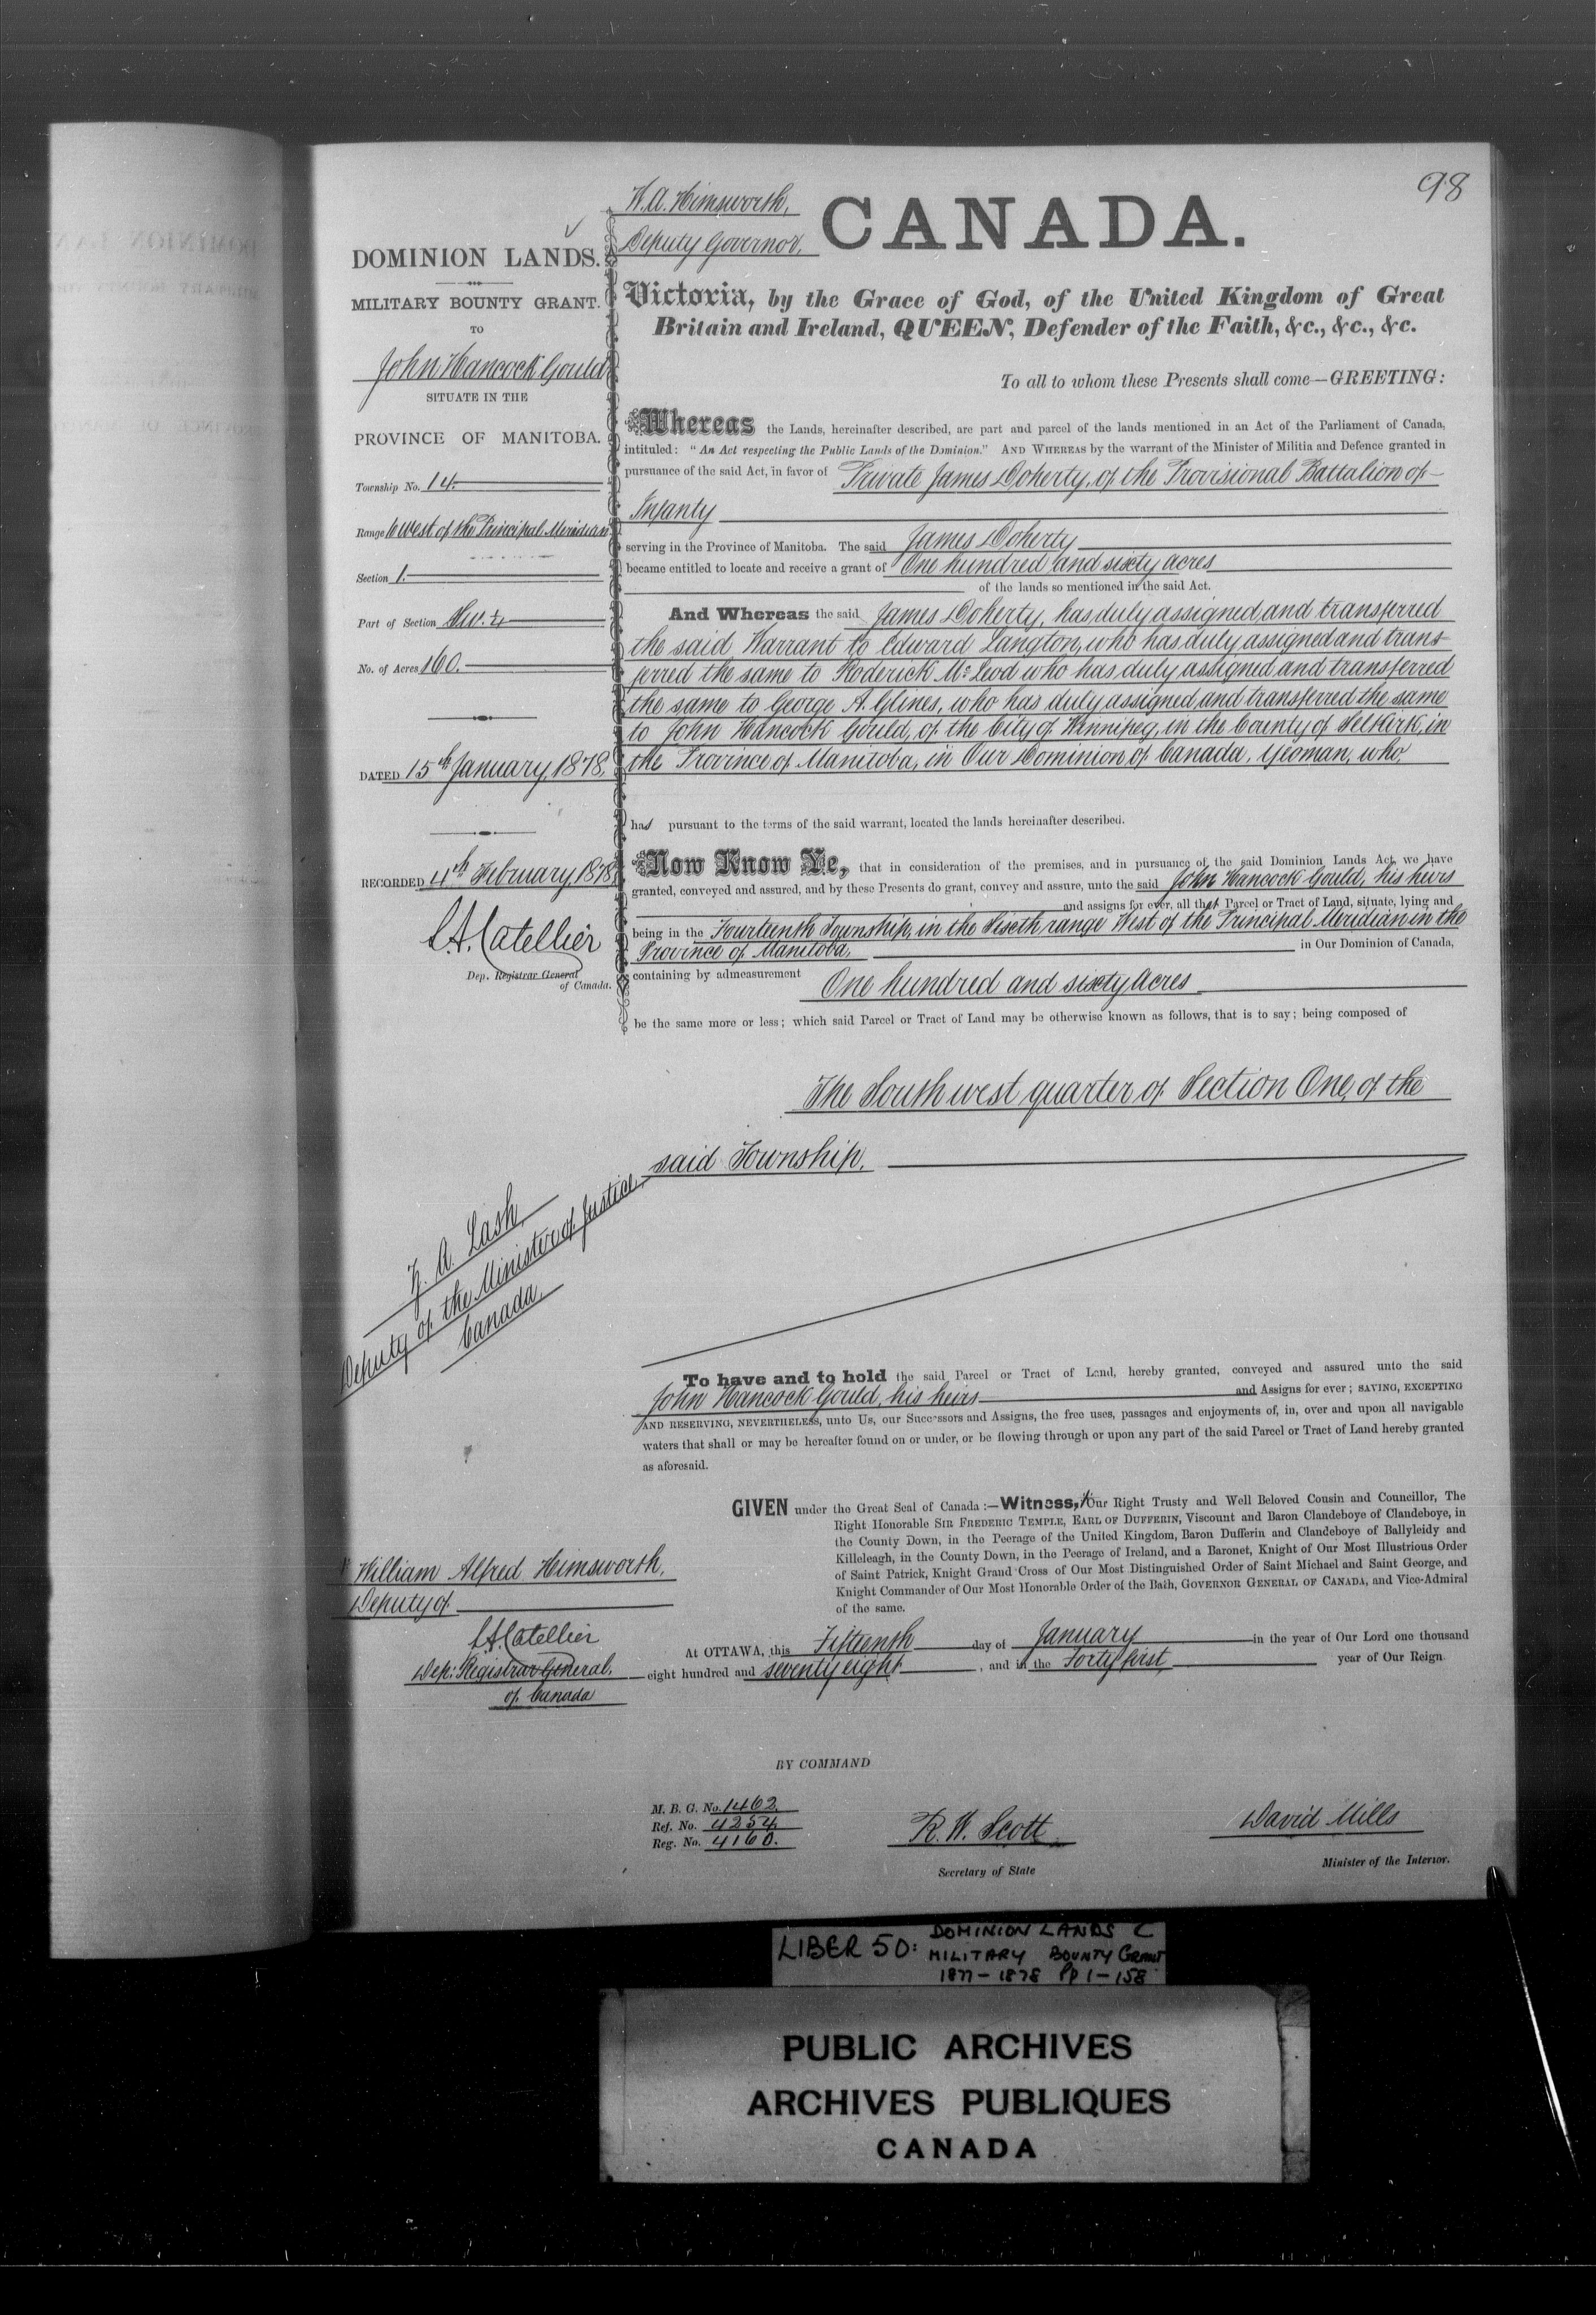 98
W. A. Himsworth,
Deputy Governor.
CANADA.
DOMINION LANDS.
MILITARY BOUNTY GRANT.
TO
John Hancock Gould
SITUATE IN THE
PROVINCE OF MANITOBA.
Township No. 14.
Range 6 West of the Principal Meridian
Section 1.
Part of Section S.W. ¼
No. of Acres 160.
DATED 15th January, 1878.
RECORDED 4th February, 1878.
L. A. Catellier
Dep. Registrar General
of Canada.
Victoria, by the Grace of God, of the United Kingdom of Great
Britain and Ireland, QUEEN, Defender of the Faith, &c., &c., &c.
To all to whom these Presents shall come—GREETING:
Whereas the Lands, hereinafter described, are part and parcel of the lands mentioned in an Act of the Parliament of Canada,
intituled: "An Act respecting the Public Lands of the Dominion." AND WHEREAS by the warrant of the Minister of Militia and Defence granted in
pursuance of the said Act, in favor of Private James Doherty, of the Provisional Battalion of
Infanty
serving in the Province of Manitoba. The said James Doherty
became entitled to locate and receive a grant of One hundred and sixty acres
of the lands so mentioned in the said Act.
And Whereas the said James Doherty, has duly assigned and transferred
the said Warrant to Edward Langton, who has duly assigned and trans-
ferred the same to Roderick McLeod who has duly assigned and transferred
the same to George A. Glines, who has duly assigned and transferred the same
to John Hancock Gould, of the City of Winnipeg, in the County of Selkirk, in
the Province of Manitoba, in Our Dominion of Canada, Yeoman, who,
has pursuant to the terms of the said warrant, located the lands hereinafter described.
Now Know Ye, that in consideration of the premises, and in pursuance of the said Dominion Lands Act, we have
granted, conveyed and assured, and by these Presents do grant, convey and assure, unto the said John Hancock Gould, his heirs
and assigns for ever, all that Parcel or Tract of Land, situate, lying and
being in the Fourteenth Township, in the Sixth range West of the Principal Meridian in the
Province of Manitoba, in Our Dominion of Canada,
containing by admeasurement One hundred and sixty acres
be the same more or less; which said Parcel or Tract of Land may be otherwise known as follows, that is to say; being composed of
The South west quarter of Section One, of the
said Township.
Z. A. Lash,
Deputy of the Minister of Justice,
Canada.
To have and to hold the said Parcel or Tract of Land, hereby granted, conveyed and assured unto the said
John Hancock Gould, his heirs and Assigns for ever; SAVING, EXCEPTING
AND RESERVING, NEVERTHELESS, unto Us, our Successors and Assigns, the free uses, passages and enjoyments of, in, over and upon all navigable
waters that shall or may be hereafter found on or under, or be flowing through or upon any part of the said Parcel or Tract of Land hereby granted
as aforesaid.
GIVEN under the Great Seal of Canada:—Witness, Our Right Trusty and Well Beloved Cousin and Councillor, The
Right Honorable SIR FREDERIC TEMPLE, EARL OF DUFFERIN, Viscount and Baron Clandeboye of Clandeboye, in
the County Down, in the Peerage of the United Kingdom, Baron Dufferin and Clandeboye of Ballyleidy and
Killeleagh, in the County Down, in the Peerage of Ireland, and a Baronet, Knight of Our Most Illustrious Order
of Saint Patrick, Knight Grand Cross of Our Most Distinguished Order of Saint Michael and Saint George, and
Knight Commander of Our Most Honorable Order of the Bath, GOVERNOR GENERAL OF CANADA, and Vice-Admiral
of the same.
William Alfred Himsworth,
Deputy of
L. A. Catellier
Dep: Registrar General,
of Canada
At OTTAWA, this Fifteenth day of January in the year of Our Lord one thousand
eight hundred and seventy eight, and in the Forty first, year of Our Reign.
BY COMMAND
M. B. G. No. 1462.
Ref. No. 4254.
Reg. No. 4160.
R. W. Scott
Secretary of State
David Mills
Minister of the Interior.
LIBER 50: DOMINION LANDS C
MILITARY BOUNTY GRANT
1877-1878 Pp 1-158
PUBLIC ARCHIVES
ARCHIVES PUBLIQUES
CANADA